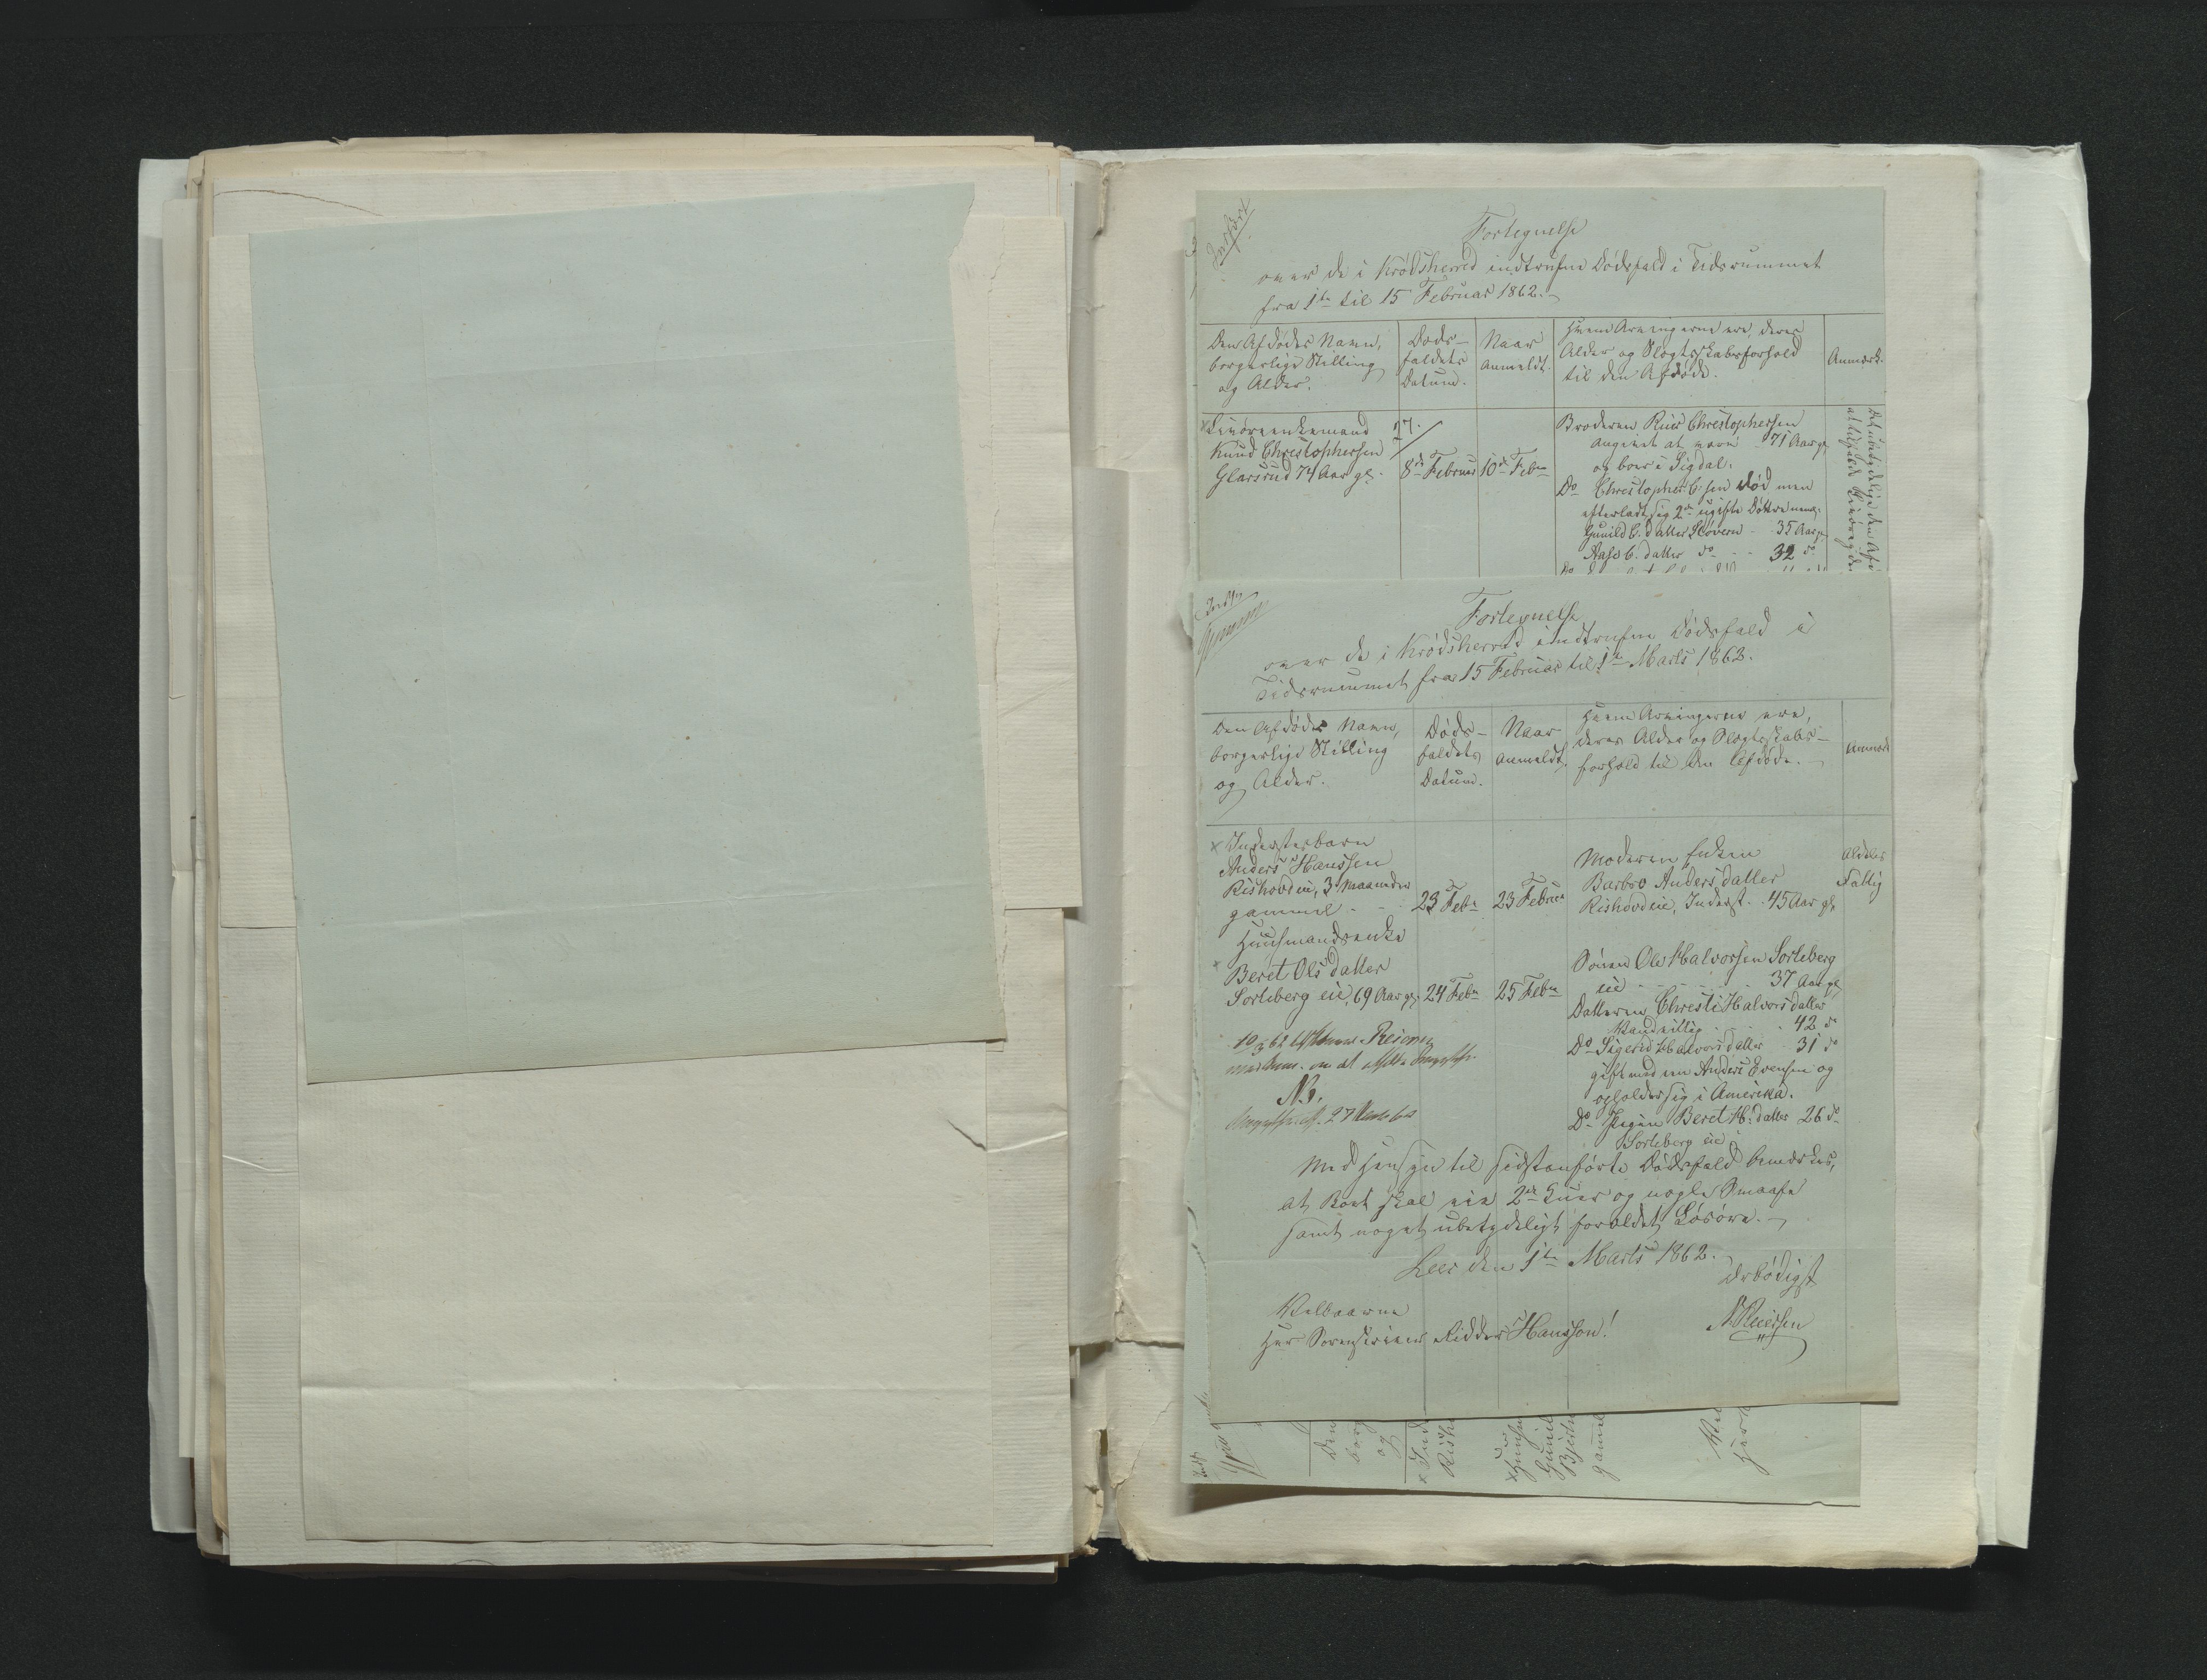 Indført
Fortegnelse
over de i Krødsherred indtrufne Dødsfald i Tidsrummet
fra 1te til 15 Februar 1862.
Den Afdødes Navn,
borgerlige Stilling
og Alder.
Døds-
faldets
Datum.
Naar
anmeldt.
Hvem Arvingerne ere, deres
Alder og Slægtskabsforhold
til den Afdøde.
Anmærk.
Knud Christophersen
Glarsrud 74 Aar gl.
8de Februar
10de Febr
Broderen Ruer Christophersen
angivet at være 71 Aar gl
og boer i Sigdal.
Do Christopher C.sen død men
efterladt sig 2de ugifte Døttre nemg:
Gunild C.datter Skovern 35 Aar gl
Aase C.datter do 32 do
Fortegnelse
over de i Krødsherred indtrufne Dødsfald i
Tidsrummet fra 15 Februar til 1te Marts 1862.
Den Afdødes Navn,
borgerlige Stilling
og Alder.
Døds-
faldets
Datum.
Naar
anmeldt.
Hvem Arvingerne ere,
deres Alder og Slægtskabs-
forhold til den Afdøde.
Anmærk
x Inderstbarn
Anders Hanssen
Rishovdeie, 3 Maaneder
gammel
23 Febr
23 Februar
Moderen Enken
Barbro Andersdatter
Rishovdeie, Inderst. 45 Aar gl
Aldeles
Fattig
Huusmandsenke
x Beret Olsdatter
Sorteberg eie, 69 Aar gl.
24 Febr
25 Febr
Sønnen Ole Halvorsen Sorteberg
eie 37 Aar gl
Datteren Christi Halvorsdatter
42 do
Do Sigrid Halvorsdatter 31 do
gift med en Anders Evensen og
opholder sig i Amerika.
Do Pigen Beret H.datter 26 do
Sorteberg eie
Med Hensyn til sidstanførte Dødsfald bemærkes,
at Boet skal eie 2de Kuer og nogle Smaafæ
samt noget ubetydeligt foraldet Løsøre.
Leer den 1te Marts 1862.
Ærbødigst
N Ruersen
Velbaarne
Herr Sorenskriver, Ridder Hansson!